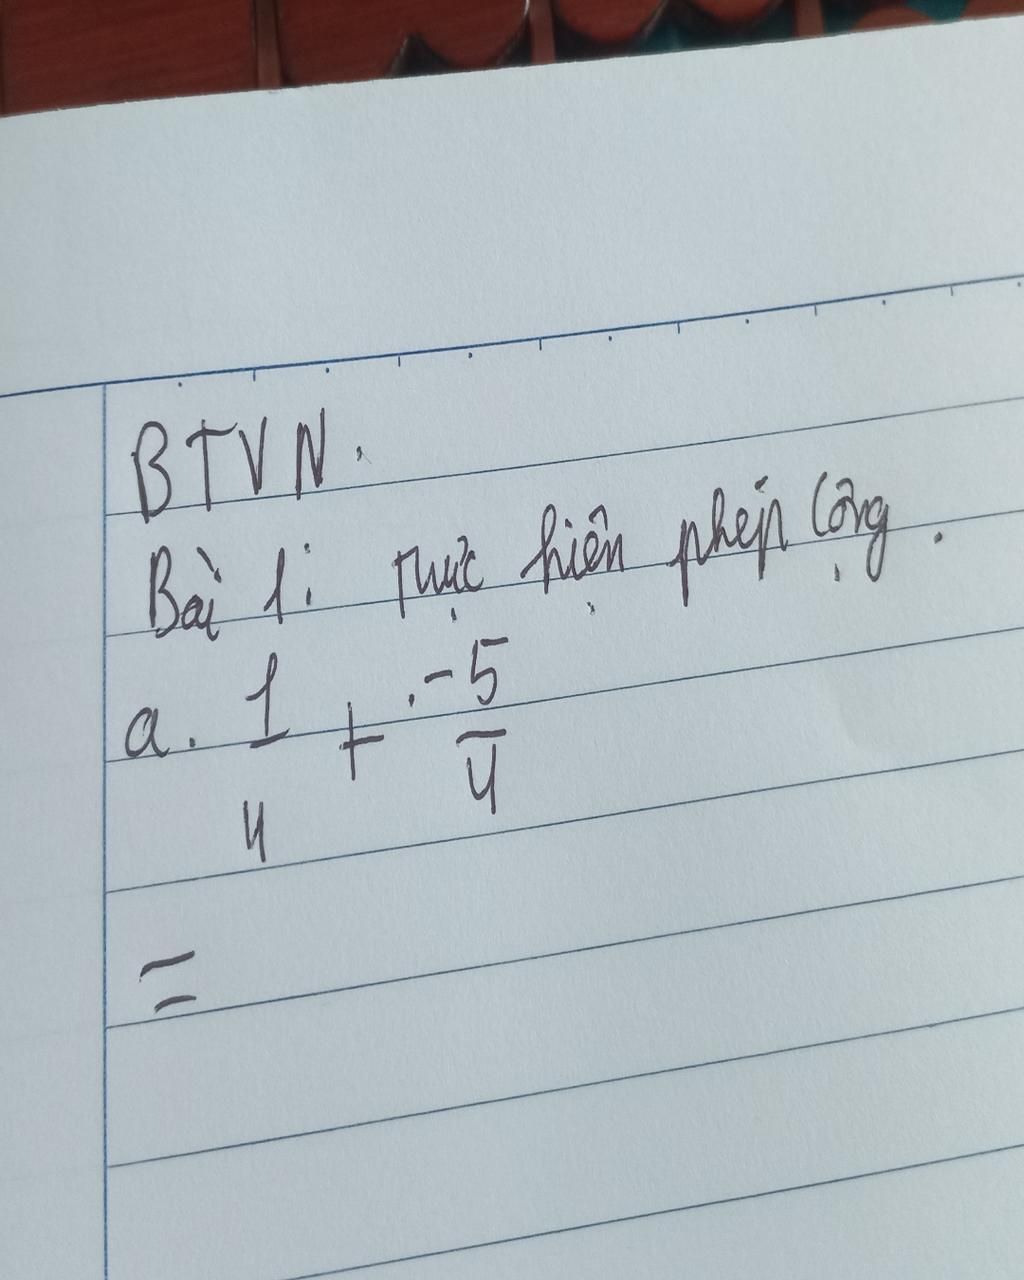 BTVN.
Bài 1: Thực hiện phép cộng.
a. 1/4 + -5/4
=